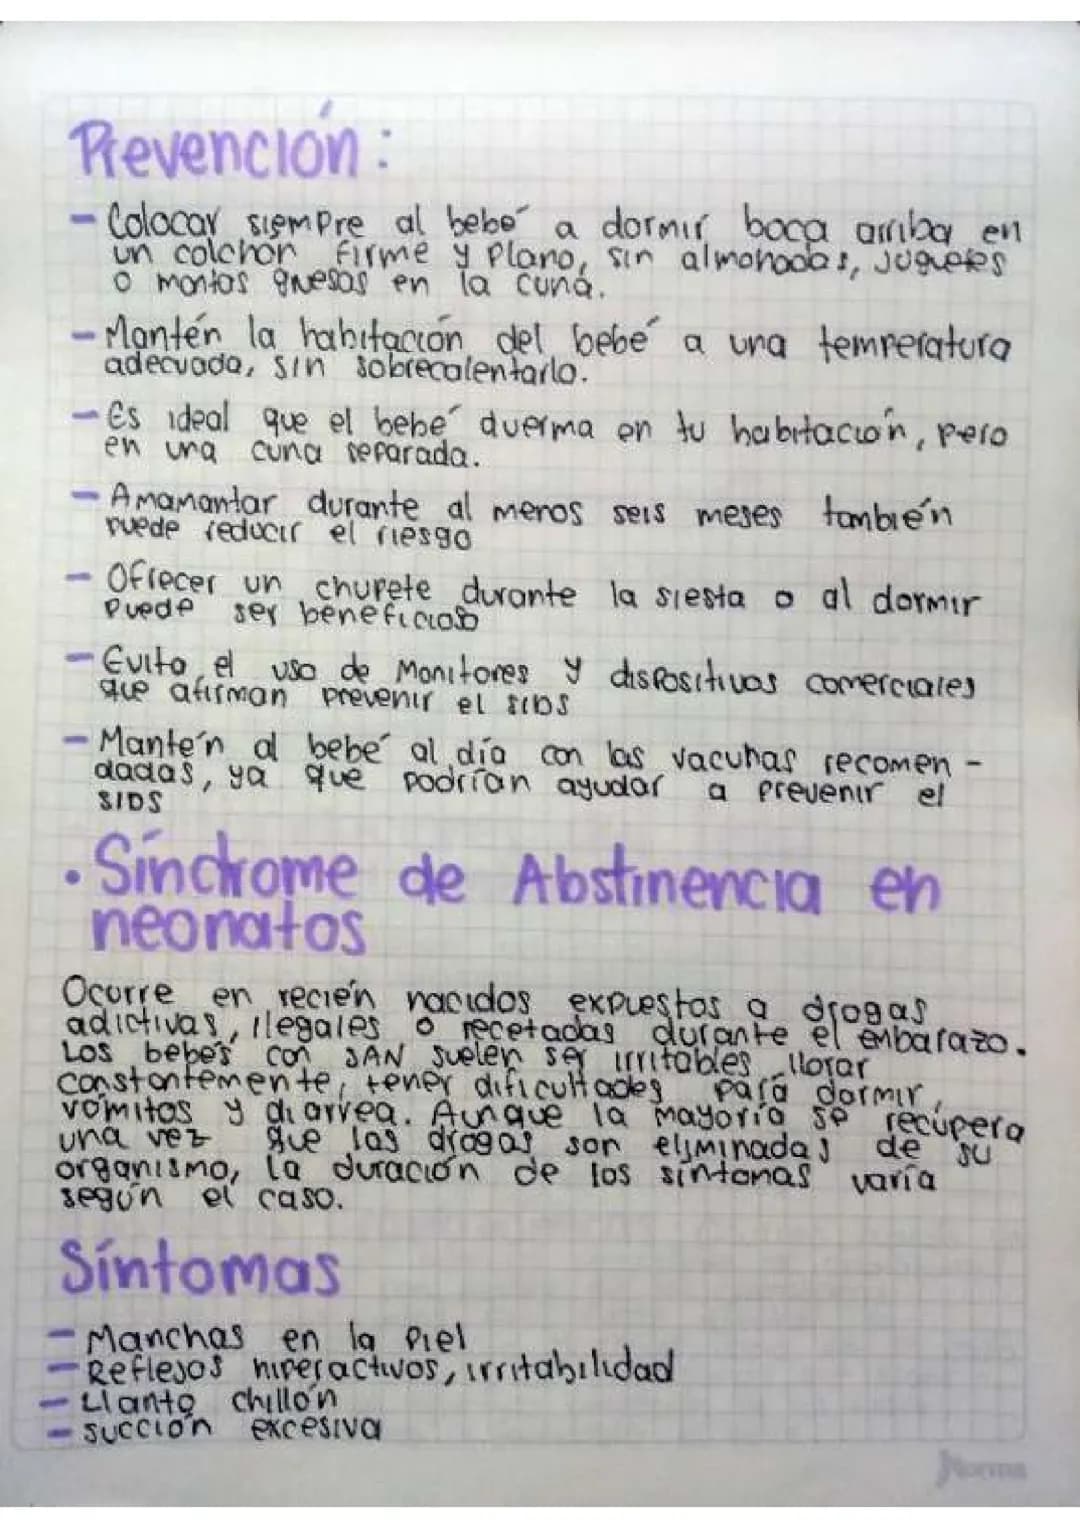 Prevención:
- Colocar siempre al bebé a dormir boca arriba en
un colchon firme y plano, sin almohadas, juguetes
o mantas gruesas en la cuna.
- Mantén la habitación del bebé a una temperatura
adecuada, sin sobrecalentarlo.
- Es ideal que el bebé duerma en tu habitación, pero
en una cuna separada.
- Amamantar durante al menos seis meses también
puede reducir el riesgo
- Ofrecer un chupete durante la siesta o al dormir
puede ser beneficioso
- Evita el uso de Monitores y dispositivos comerciales
que afirman prevenir el SIDS
- Mantén al bebé al día con las vacunas recomen-
dadas, ya que podrían ayudar a prevenir el
SIDS
• Síndrome de Abstinencia en
neonatos
Ocurre en recién nacidos expuestos a drogas
adictivas, ilegales o recetadas durante el embarazo.
Los bebés con SAN suelen ser irritables, llorar
constantemente, tener dificultades para dormir,
vómitos y diarrea. Aunque la mayoría se recupera
una vez que las drogas son eliminadas de su
organismo, la duración de los síntomas varía
según el caso.
Síntomas
- Manchas en la piel
- Reflejos hiperactivos, irritabilidad
- Llanto chillón
- succión excesiva
Norma